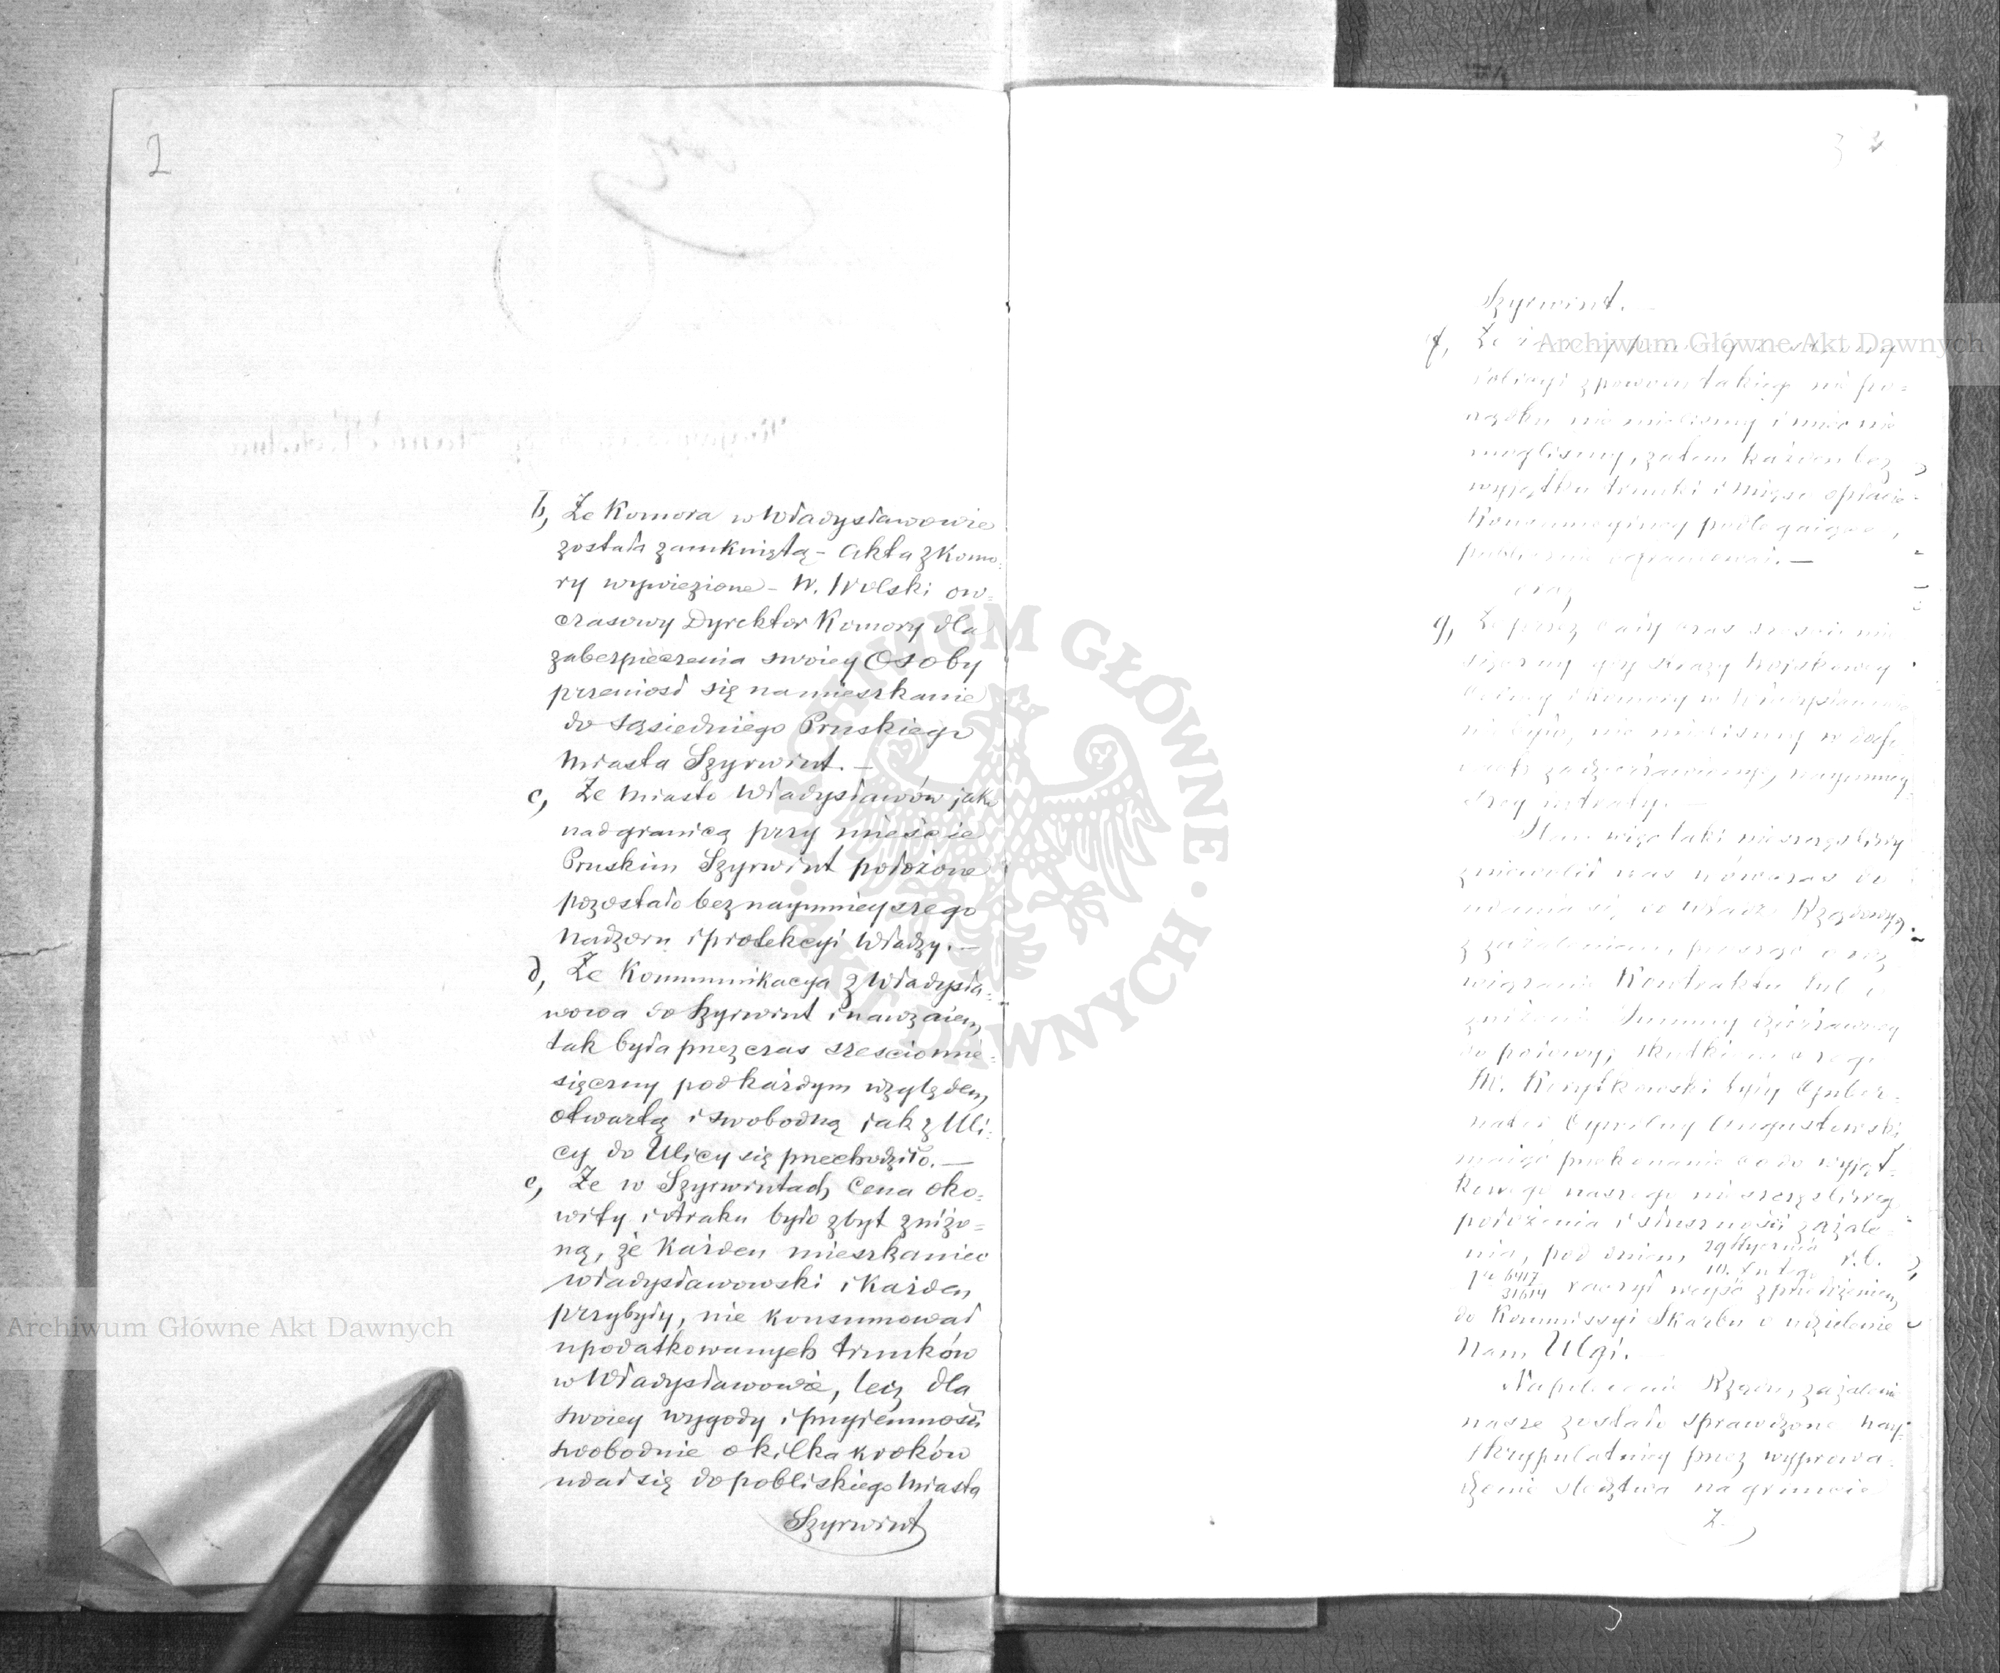 2
b, Że Komora w Władysławowie
została zamkniętą – Akta z Komo-
ry wywiezione – W. Wolski ow-
czasowy Dyrektor Komory dla
zabezpieczenia swoiey Osoby
przeniosł się na mieszkanie
do sąsiedniego Pruskiego
Miasta Szyrwint. –
c, Że Miasto Władysławów jako
nad granicą przy mieście
Pruskim Szyrwint położone
pozostało bez naymnieyszego
Nadzoru i protekcyi Władzy. –
d, Że Kommunikacya z Władysła-
wowa do Szyrwint i nawzaiem,
tak była przez czas sześciomie-
sięczny pod każdym względem,
otwartą i swobodną jak z Uli-
cy do Ulicy się przechodziło. –
e, Że w Szyrwintach Cena oko-
wity i Araku było zbyt zniżo-
ną, że Każden mieszkaniec
Władysławowski i Każden
przybyły, nie konsumował
upodatkowanych trunków
w Władysławowie, lecz dla
swoiey wygody i przyiemności
swobodnie o kilka kroków
udał się do pobliskiego Miasta
Szyrwint
3
Szyrwint. –
f, Że
nie po-
rządku nie mieliśmy i mieć nie
mogliśmy, zatem każden bez
wyjątku trunki i mięso opłacie
Konsumcyiney podlegaiące,
publicznie –
oraz
g, Że przez cały czas sześcio mie-
sięczny gdy Straży Woyskowey
i Komory w Władysławowie
nie było, nie mieliśmy w doch-
naymniey-
szey intraty. –
Stan więc taki nieszczęśliwy
zniewolił nas nówczas do
udania się do Władz Rządowych
z zażaleniem, prosząc o roz-
wiązanie Kontraktu lub o
zniżenie Summy dzierżawney
do połowy; skutkiem czego
W. Korytkowski były Guber-
nator Cywilny Augustowski
maiąc przekonanie co do wyjąt-
kowego naszego nieszczęśliwego
położenia i słuszności zażale-
nia, pod dniem 29 Stycznia / 10. Lutego r. b.
№ 6417 / 31614 raczył weyść z przedłożeniem,
do Kommissyi Skarbu o udzielenie
Nam Ulgi. –
Na polecenie Rządu, zażalenie
nasze zostało sprawdzone nay-
skrypulatniey przez wyprowa-
dzenie śledztwa na gruncie
Z.
Archiwum Główne Akt Dawnych
Archiwum Główne Akt Dawnych
ARCHIWUM GŁÓWNE AKT DAWNYCH